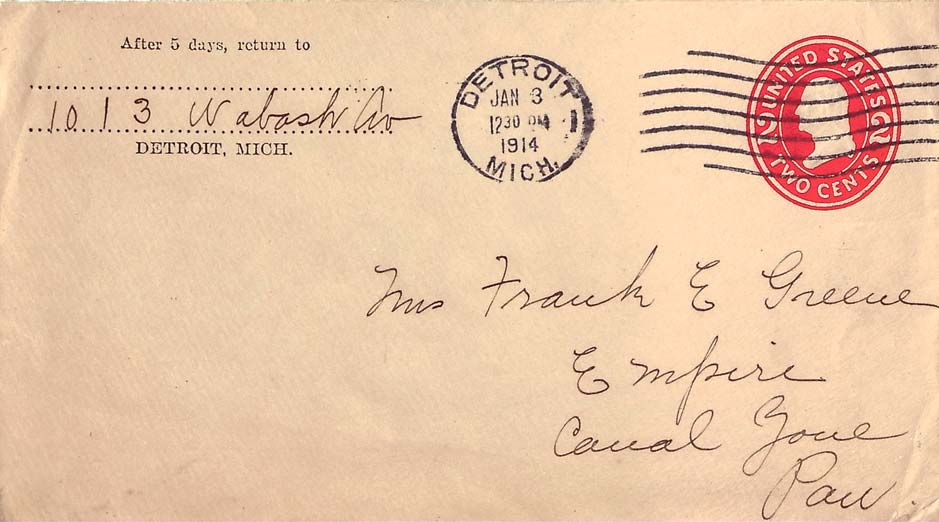 After 5 days, return to
1013 Wabash Av
DETROIT, MICH.
DETROIT
JAN 3
1230 PM
1914
MICH.
UNITED STATES
2 2
TWO CENTS
Mrs Frank E Greene
Empire
Canal Zone
Pan.